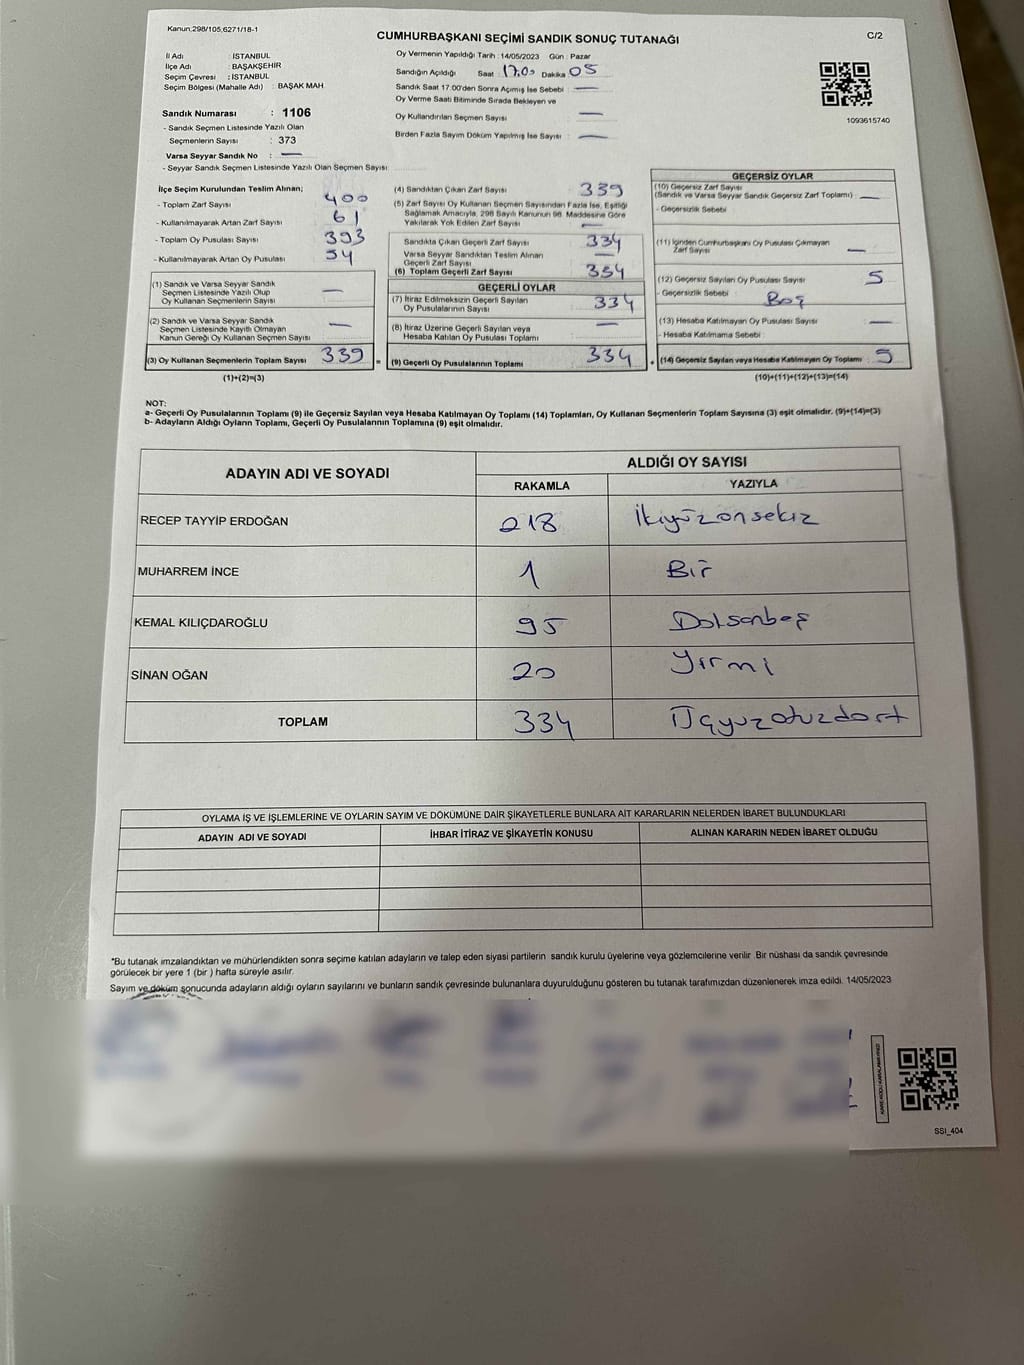 Kanun;298/105,6271/18-1
CUMHURBAŞKANI SEÇİMİ SANDIK SONUÇ TUTANAĞI
C/2
İl Adı : İSTANBUL
İlçe Adı : BAŞAKŞEHİR
Seçim Çevresi : İSTANBUL
Seçim Bölgesi (Mahalle Adı) : BAŞAK MAH.
Oy Vermenin Yapıldığı Tarih : 14/05/2023 Gün : Pazar
Sandığın Açıldığı Saat : 17.00 Dakika 05
Sandık Saat 17.00'den Sonra Açımış İse Sebebi : —
Oy Verme Saati Bitiminde Sırada Bekleyen ve
Oy Kullandırılan Seçmen Sayısı —
Birden Fazla Sayım Döküm Yapılmış İse Sayısı : —
1093615740
Sandık Numarası : 1106
- Sandık Seçmen Listesinde Yazılı Olan
Seçmenlerin Sayısı : 373
Varsa Seyyar Sandık No : —
- Seyyar Sandık Seçmen Listesinde Yazılı Olan Seçmen Sayısı:
İlçe Seçim Kurulundan Teslim Alınan;
- Toplam Zarf Sayısı 400
- Kullanılmayarak Artan Zarf Sayısı 61
- Toplam Oy Pusulası Sayısı 393
- Kullanılmayarak Artan Oy Pusulası 54
(1) Sandık ve Varsa Seyyar Sandık
Seçmen Listesinde Yazılı Olup
Oy Kullanan Seçmenlerin Sayısı —
(2) Sandık ve Varsa Seyyar Sandık
Seçmen Listesinde Kayıtlı Olmayan
Kanun Gereği Oy Kullanan Seçmen Sayısı —
(3) Oy Kullanan Seçmenlerin Toplam Sayısı 339 =
(1)+(2)=(3)
(4) Sandıktan Çıkan Zarf Sayısı 339
(5) Zarf Sayısı Oy Kullanan Seçmen Sayısından Fazla İse, Eşitliği
Sağlamak Amacıyla, 298 Sayılı Kanunun 98. Maddesine Göre
Yakılarak Yok Edilen Zarf Sayısı —
Sandıkta Çıkan Geçerli Zarf Sayısı 334
Varsa Seyyar Sandıktan Teslim Alınan
Geçerli Zarf Sayısı —
(6) Toplam Geçerli Zarf Sayısı 334
GEÇERLİ OYLAR
(7) İtiraz Edilmeksizin Geçerli Sayılan
Oy Pusulalarının Sayısı 334
(8) İtiraz Üzerine Geçerli Sayılan veya
Hesaba Katılan Oy Pusulası Toplamı —
(9) Geçerli Oy Pusulalarının Toplamı 334 +
GEÇERSİZ OYLAR
(10) Geçersiz Zarf Sayısı
(Sandık ve Varsa Seyyar Sandık Geçersiz Zarf Toplamı) —
- Geçersizlik Sebebi :
(11) İçinden Cumhurbaşkanı Oy Pusulası Çıkmayan
Zarf Sayısı —
(12) Geçersiz Sayılan Oy Pusulası Sayısı 5
- Geçersizlik Sebebi : Boş
(13) Hesaba Katılmayan Oy Pusulası Sayısı —
- Hesaba Katılmama Sebebi :
(14) Geçersiz Sayılan veya Hesaba Katılmayan Oy Toplamı 5
(10)+(11)+(12)+(13)=(14)
NOT:
a- Geçerli Oy Pusulalarının Toplamı (9) ile Geçersiz Sayılan veya Hesaba Katılmayan Oy Toplamı (14) Toplamları, Oy Kullanan Seçmenlerin Toplam Sayısına (3) eşit olmalıdır. (9)+(14)=(3)
b- Adayların Aldığı Oyların Toplamı, Geçerli Oy Pusulalarının Toplamına (9) eşit olmalıdır.
ADAYIN ADI VE SOYADI
ALDIĞI OY SAYISI
RAKAMLA YAZIYLA
RECEP TAYYİP ERDOĞAN 218 İkiyüzonsekiz
MUHARREM İNCE 1 Bir
KEMAL KILIÇDAROĞLU 95 Doksanbeş
SİNAN OĞAN 20 Yirmi
TOPLAM 334 Üçyüzotuzdört
OYLAMA İŞ VE İŞLEMLERİNE VE OYLARIN SAYIM VE DÖKÜMÜNE DAİR ŞİKAYETLERLE BUNLARA AİT KARARLARIN NELERDEN İBARET BULUNDUKLARI
ADAYIN ADI VE SOYADI İHBAR İTİRAZ VE ŞİKAYETİN KONUSU ALINAN KARARIN NEDEN İBARET OLDUĞU
*Bu tutanak imzalandıktan ve mühürlendikten sonra seçime katılan adayların ve talep eden siyasi partilerin sandık kurulu üyelerine veya gözlemcilerine verilir .Bir nüshası da sandık çevresinde
görülecek bir yere 1 (bir ) hafta süreyle asılır.
Sayım ve döküm sonucunda adayların aldığı oyların sayılarını ve bunların sandık çevresinde bulunanlara duyurulduğunu gösteren bu tutanak tarafımızdan düzenlenerek imza edildi. 14/05/2023
SSI_404